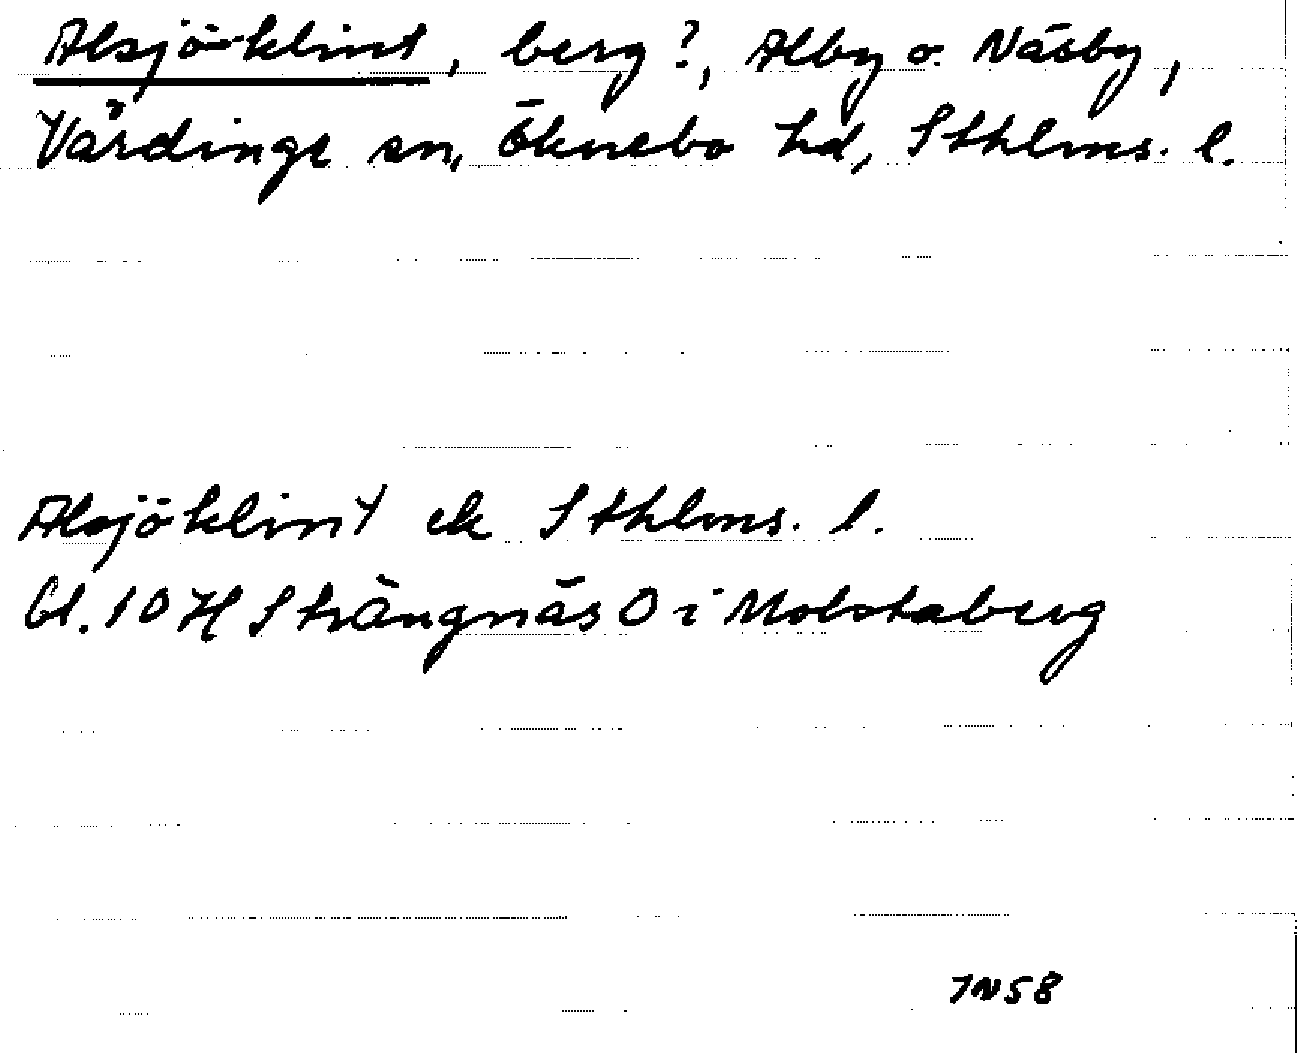 Alsjöklint, berg?, Alby o. Näsby,
Vårdinge sn, Öknebo hd, Sthlms. l.
Alsjöklint ek Sthlms. l.
Bl. 10 H Strängnäs O i Molstaberg
7N58